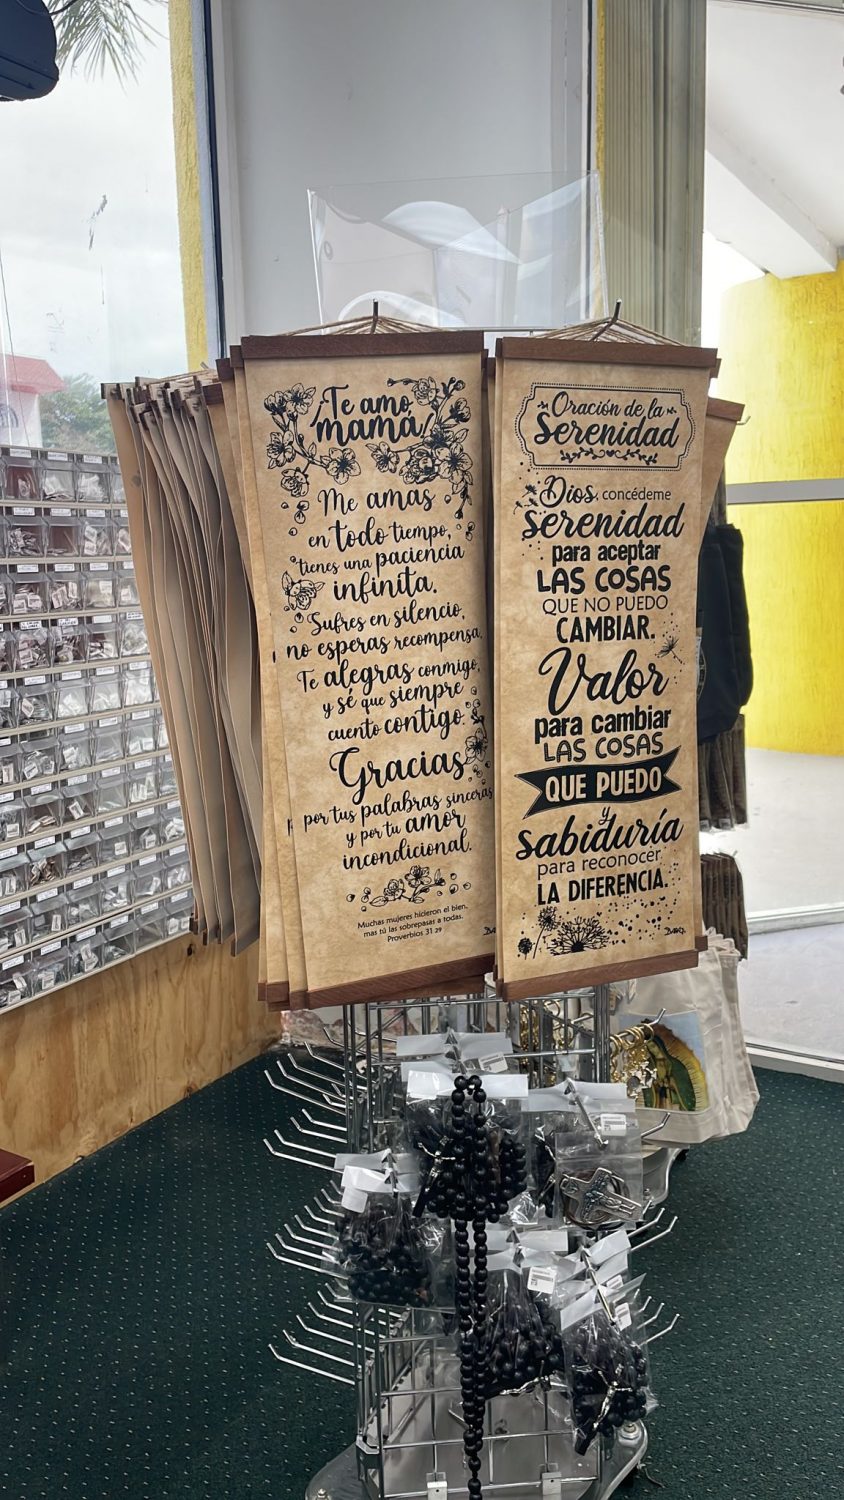 Te amo,
mamá
Me amas
en todo tiempo,
tienes una paciencia
infinita.
Sufres en silencio,
no esperas recompensa.
Te alegras conmigo,
y sé que siempre
cuento contigo.
Gracias
por tus palabras sinceras
y por tu amor
incondicional.
Muchas mujeres hicieron el bien,
mas tú las sobrepasas a todas.
Proverbios 31 29
Oración de la
Serenidad
Dios, concédeme
serenidad
para aceptar
LAS COSAS
QUE NO PUEDO
CAMBIAR.
Valor
para cambiar
LAS COSAS
QUE PUEDO
y
sabiduría
para reconocer
LA DIFERENCIA.